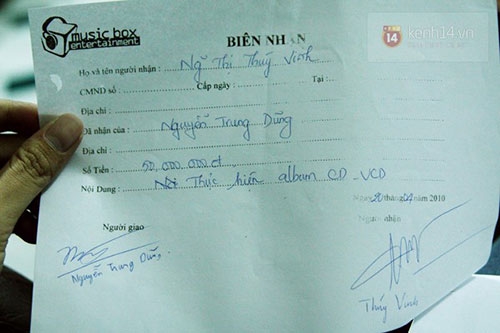 music box
entertainment
kenh14.vn
BIÊN NHẬN
Họ và tên người nhận : Ng~ Thị Thúy Vinh
CMND số : Cấp ngày : Tại :
Địa chỉ :
Đã nhận của : Nguyễn Trung Dũng
Địa chỉ :
Số Tiền : 50,000,000đ
Nội Dung : Thực hiện album CD_VCD
Ngày tháng 04 năm 2010
Người giao Người nhận
Nguyễn Trung Dũng
Thúy Vinh